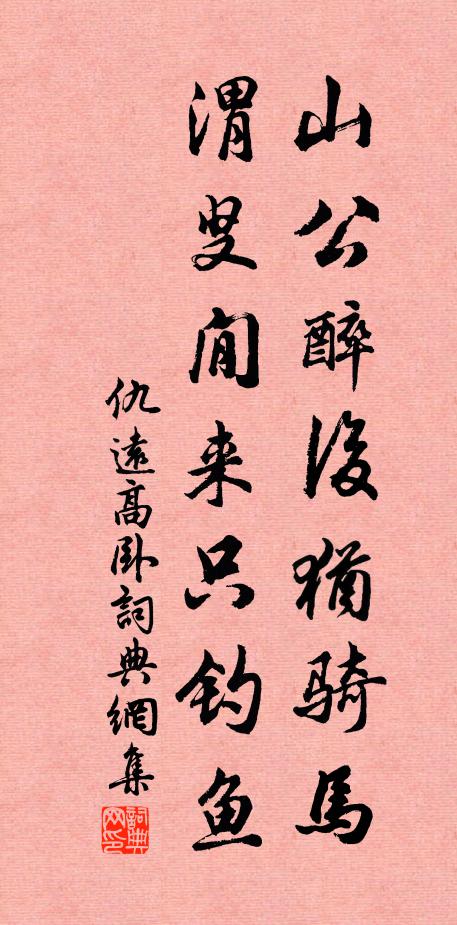 山公醉后猶騎馬
渭叟閒来只钓鱼
仇遠高卧詞典網集
詞典网印